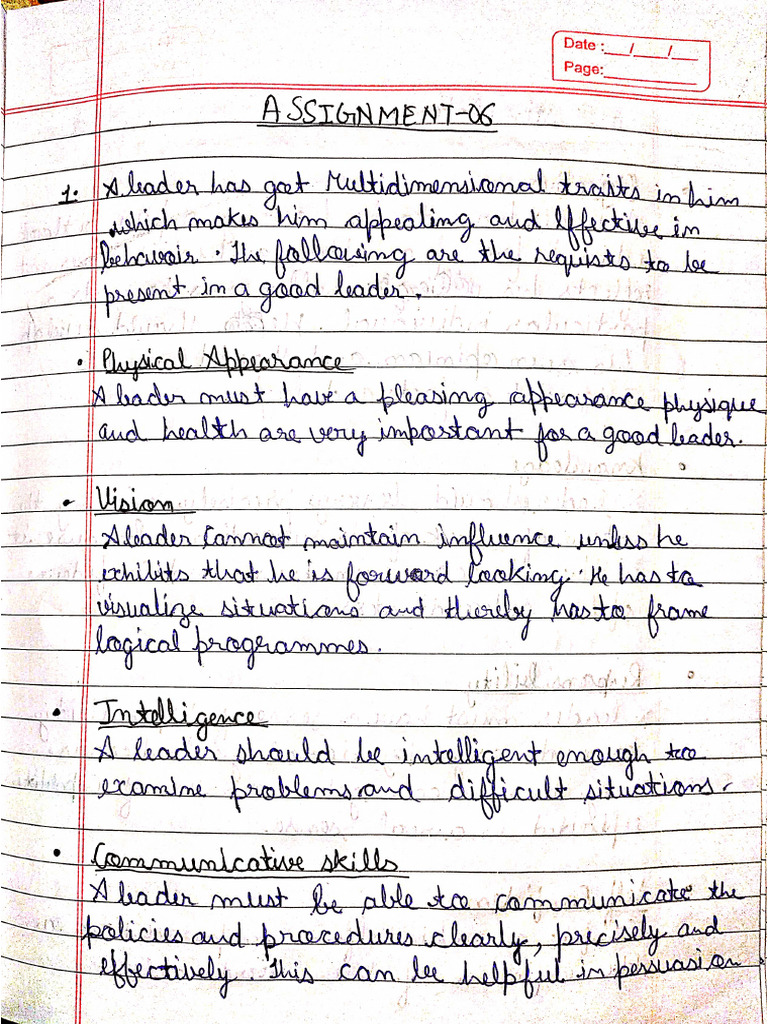 Date :___/___/___
Page:___________
ASSIGNMENT-06
1. A leader has got Multidimensional traits in him
which makes him appealing and effective in
behavoir. The following are the requists to be
present in a good leader.
• Physical Appearance
A leader must have a pleasing appearance physique
and health are very important for a good leader.
• Vision
A leader cannot maintain influence unless he
exhibits that he is forward looking. He has to
visualize situations and thereby has to frame
logical programmes.
• Intelligence
A leader should be intelligent enough to
examine problems and difficult situations.
• Communicative skills
A leader must be able to communicate the
policies and procedures clearly, precisely and
effectively. This can be helpful in persuasion